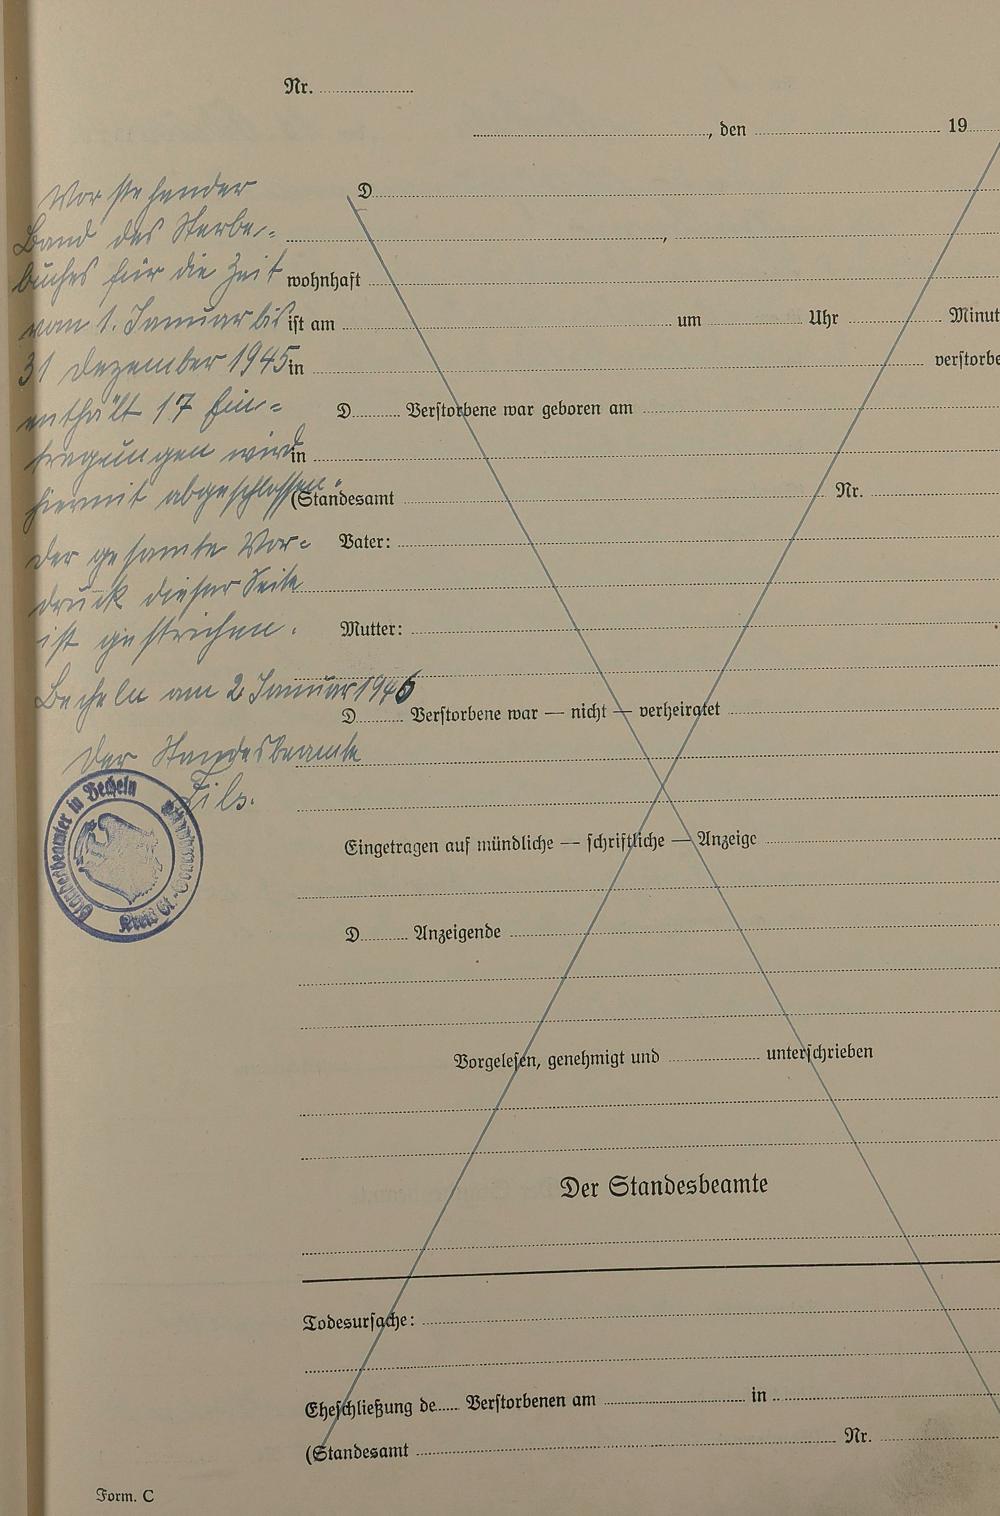 Nr.
, den 19
Vorstehender
Band des Sterbe-
buches für die Zeit
vom 1. Januar bis
31 Dezember 1945
enthält 17 Ein-
tragungen wird
hiermit abgeschlossen.
Der gesamte Vor-
druck dieser Seite
ist gestrichen.
Becheln am 2 Januar 1946
Der Standesbeamte
Fils.
Standesbeamter in Becheln
Kreis St.
D
,
wohnhaft
ist am um Uhr Minut
in verstorbe
D Verstorbene war geboren am
in
(Standesamt Nr.
Vater:
Mutter:
D Verstorbene war — nicht — verheiratet
Eingetragen auf mündliche — schriftliche — Anzeige
D Anzeigende
Vorgelesen, genehmigt und unterschrieben
Der Standesbeamte
Todesursache:
Eheschließung de Verstorbenen am in
(Standesamt Nr.
Form. C